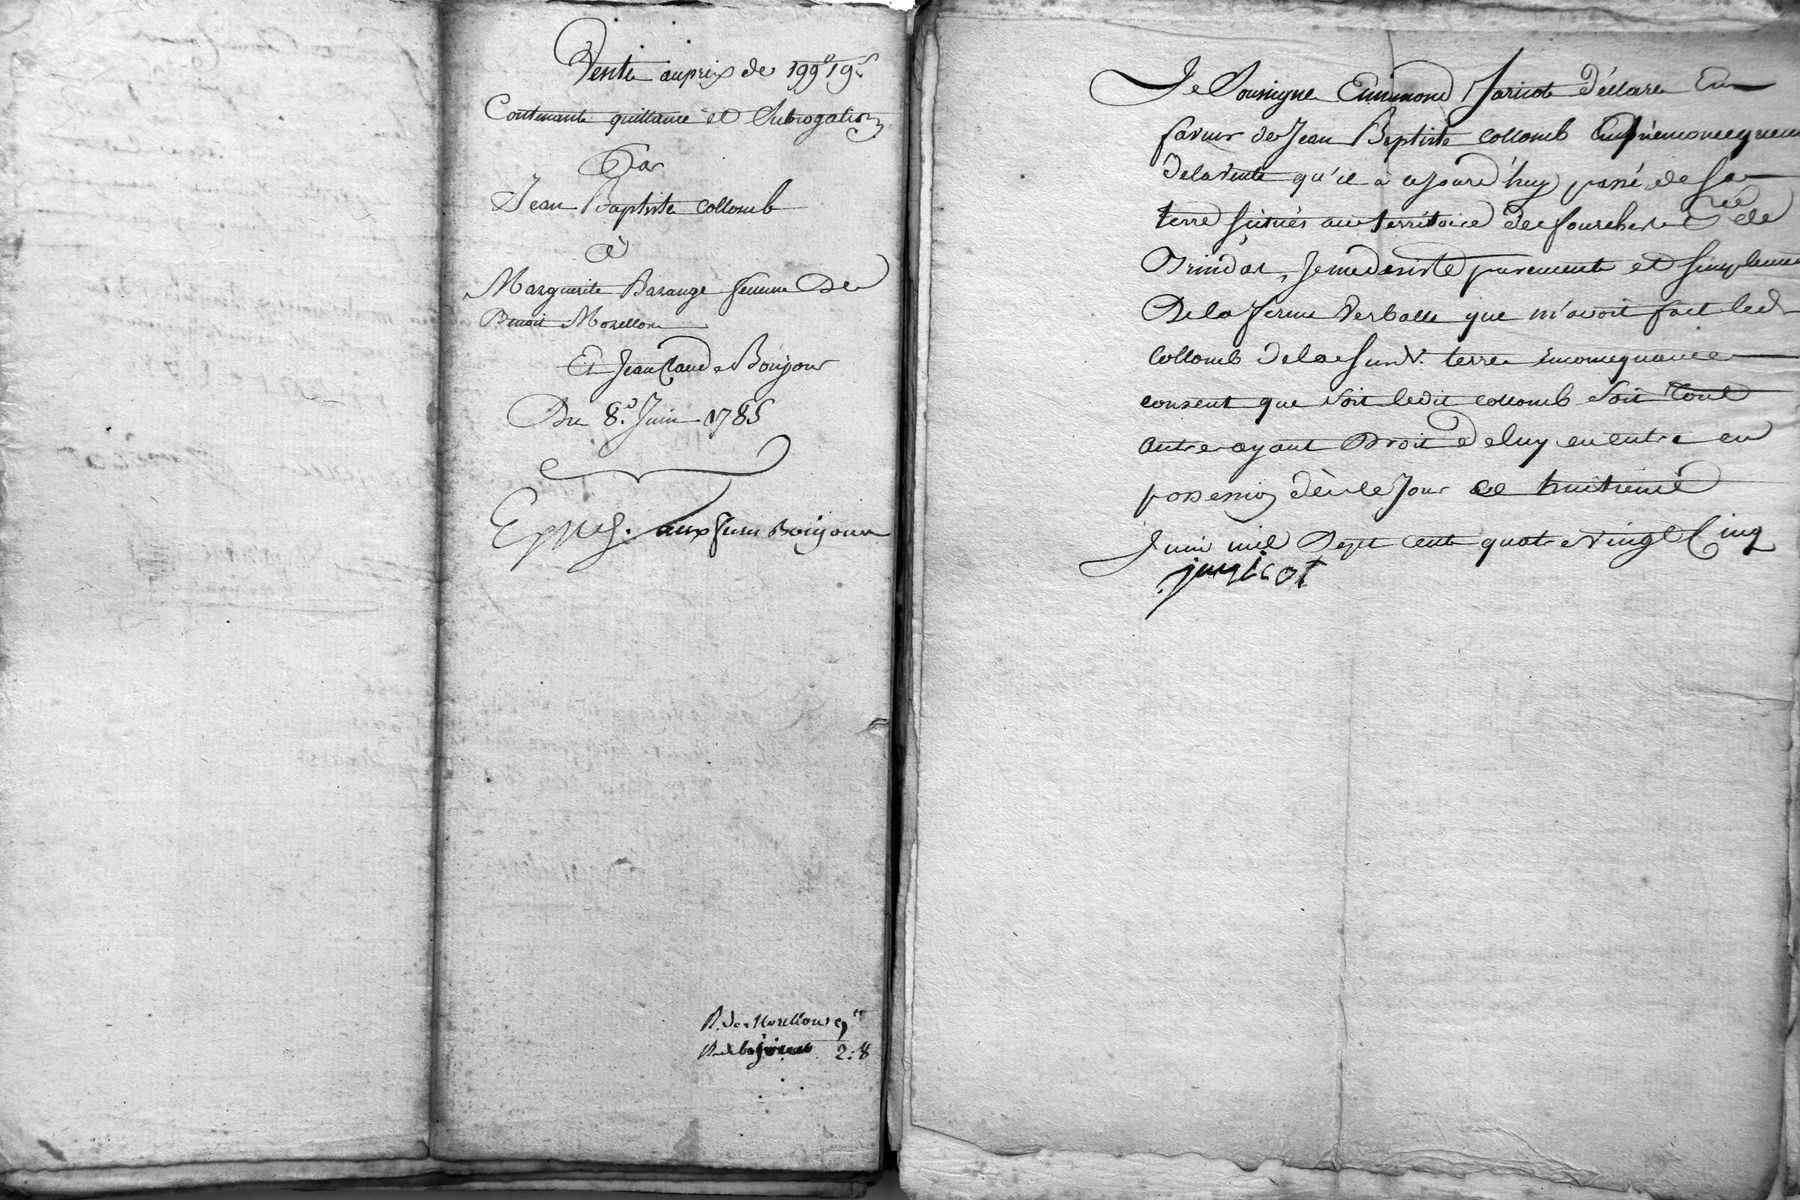 Vente au prix de 199# 19s
Contenante quittance et Subrogation
Par
Jean Baptiste Collomb
à
Marguerite Barange femme De
Benoit Morellon
Et Jean Claude Bonjour
Du 8e. Juin 1785
Expée. aux Srs Bonjour
R. de Morellon 9#
2:8
Je Soussigné Ennemond Jaricot déclare En
faveur de Jean Baptiste Collomb
de la vente qu'il a cejourd'huy passé de sa
terre située au territoire de fourchere Psse de
Brindas, Je me desiste purement et simplement
De la ferme verballe que m'avoit fait led.
Collomb de la susd. terre en consequance
consent que soit ledit Collomb soit tout
autre ayant Droit de luy en entre en
possession dès le Jour ce huitieme
Juin mil Sept cent quatre vingt Cinq
jaricot